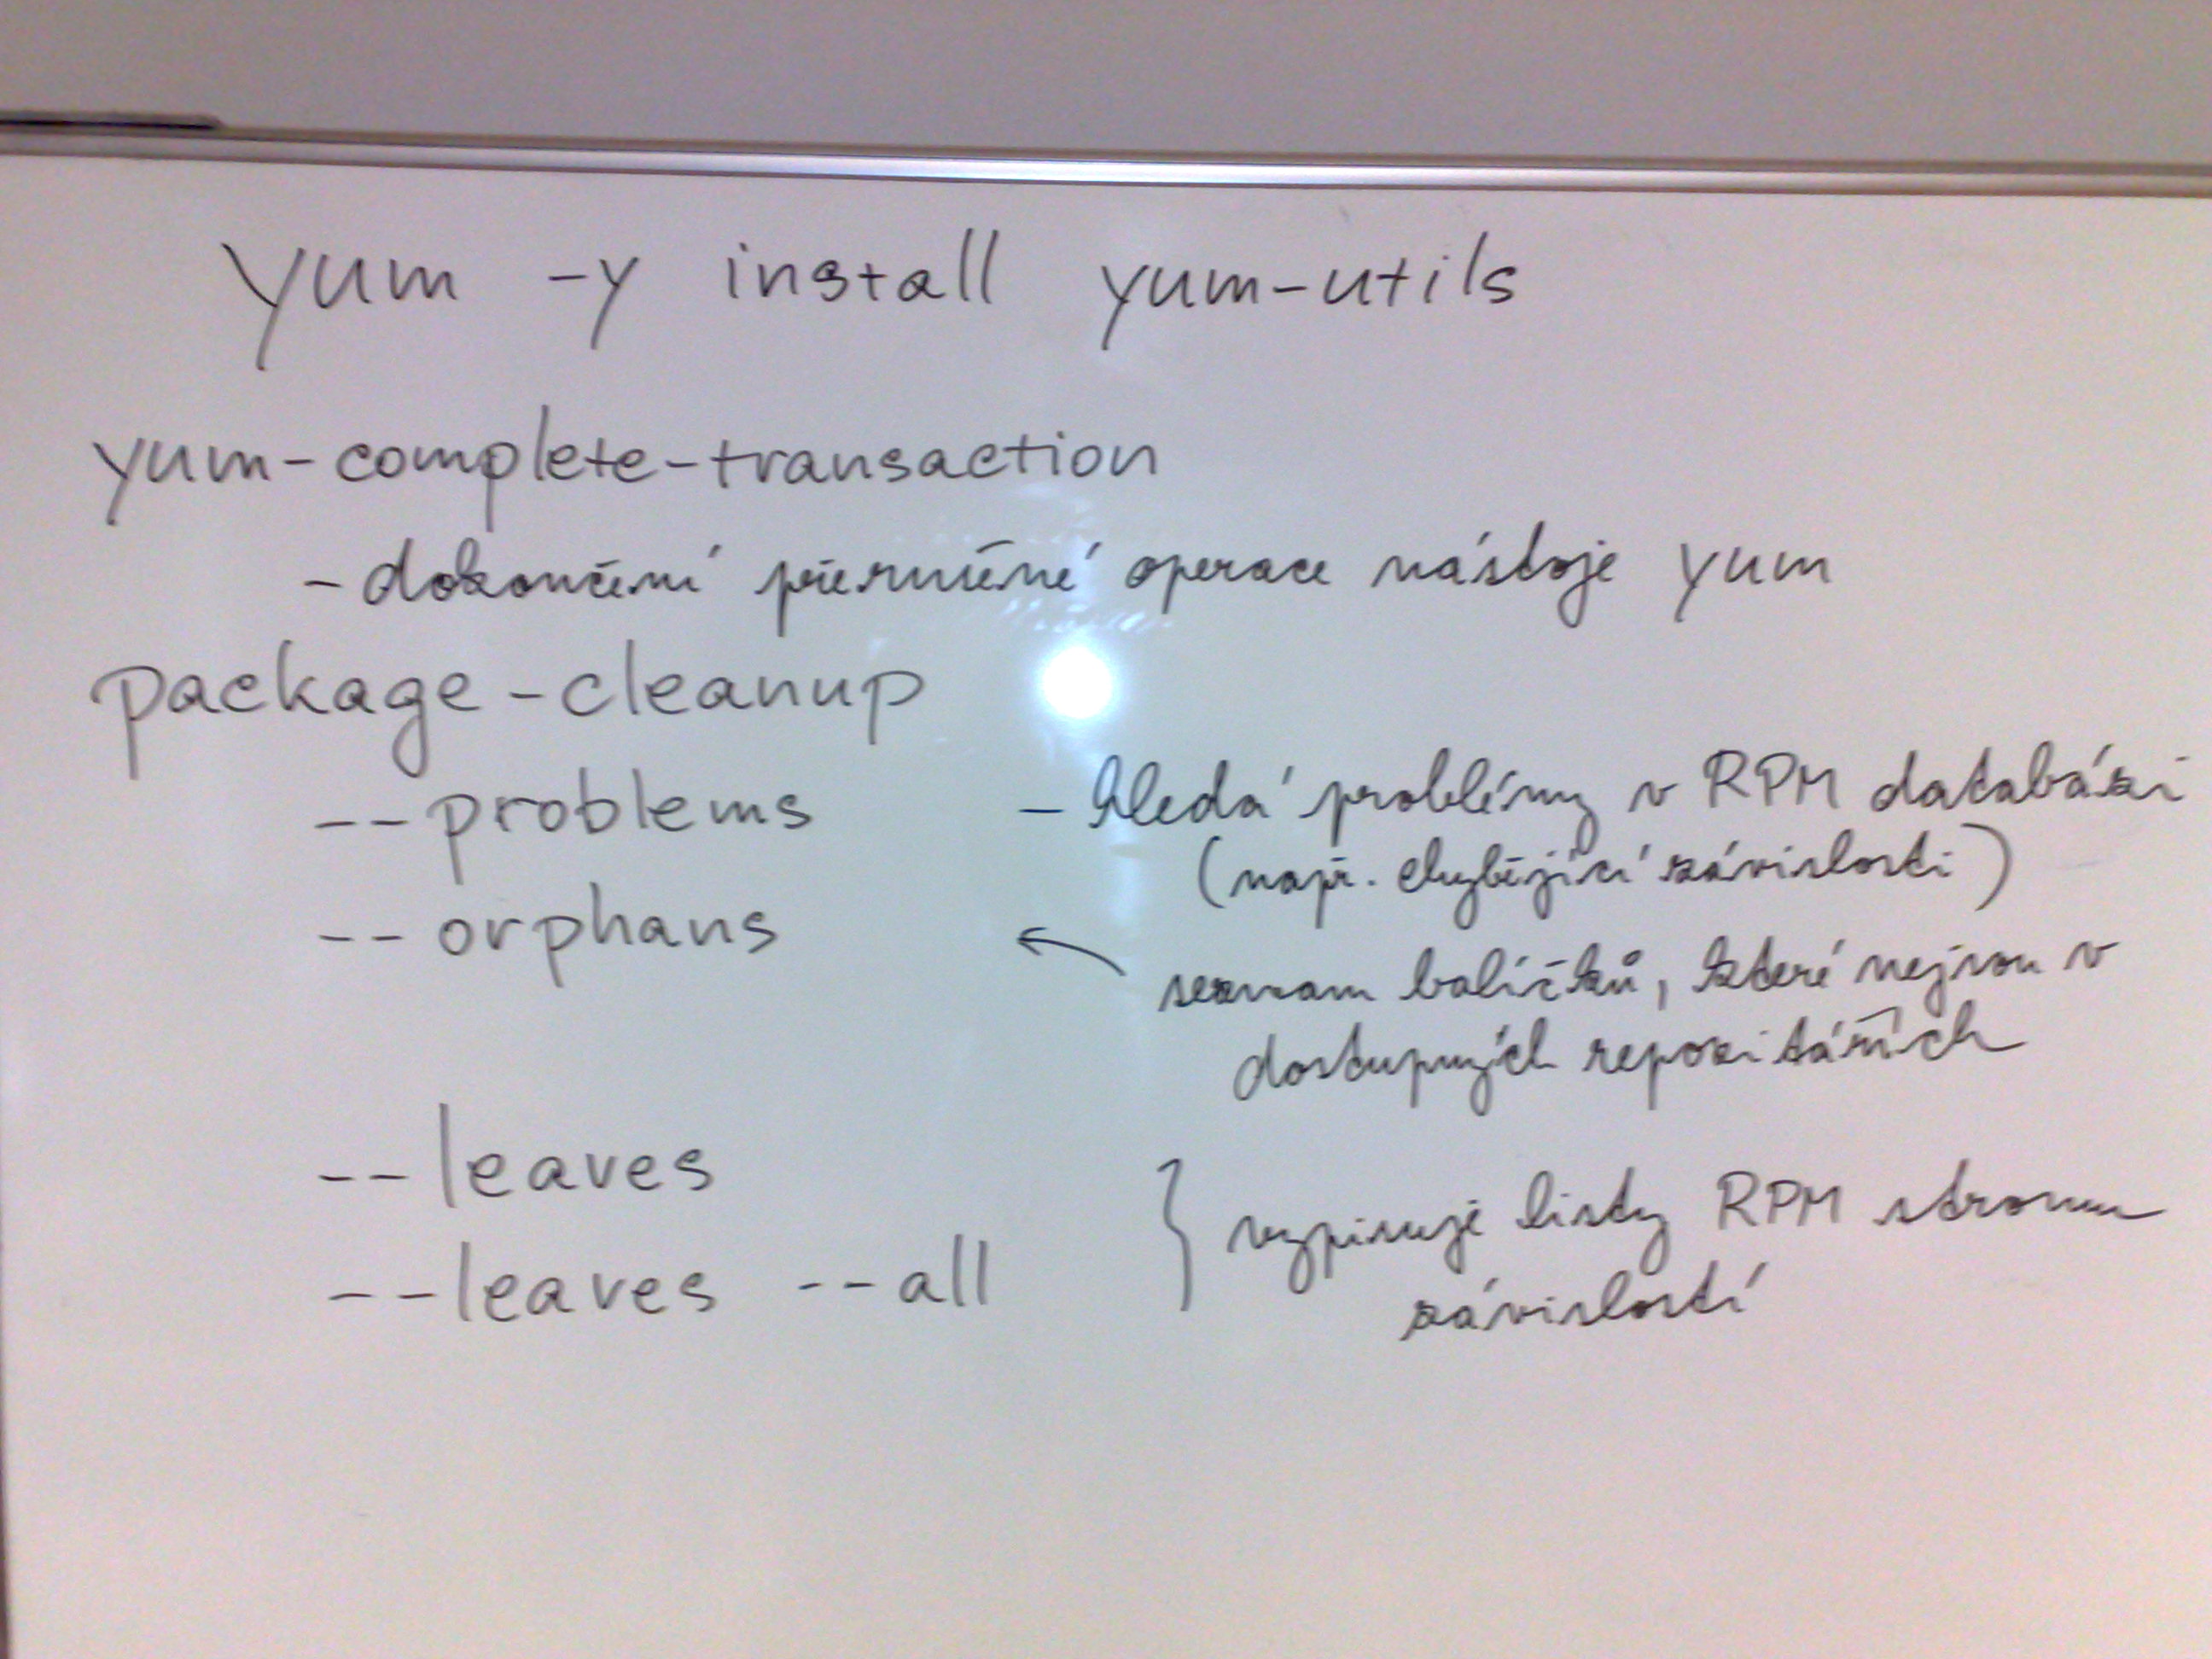 yum -y install yum-utils
yum-complete-transaction
- dokončení přerušené operace nástoje yum
package-cleanup
--problems - hledá problémy v RPM databázi
(např. chybějící závislosti)
--orphans ← seznam balíčků, které nejsou v
dostupných repozitářích
--leaves
--leaves --all } vypisuje listy RPM stromu
závislostí